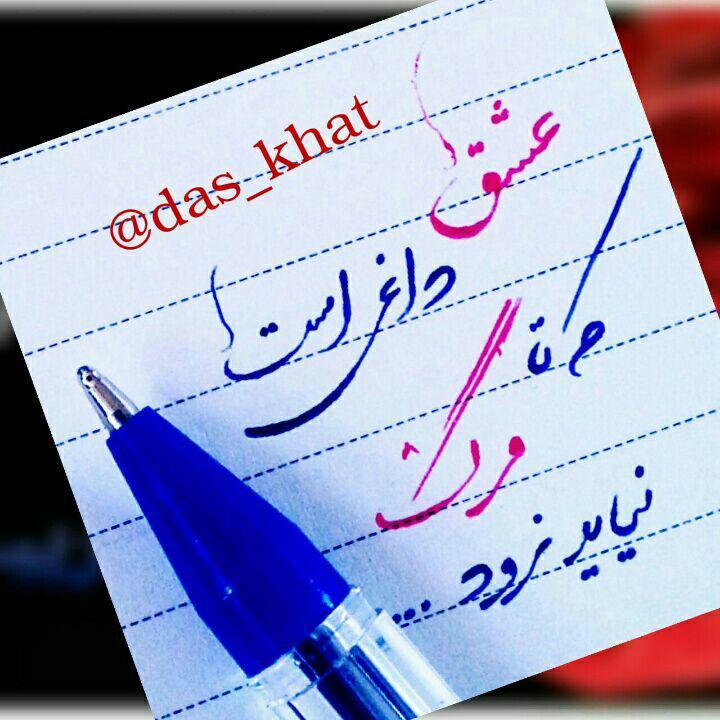 @das_khat
عشق
داغی است
که تا
مرگ
نیاید نرود ...